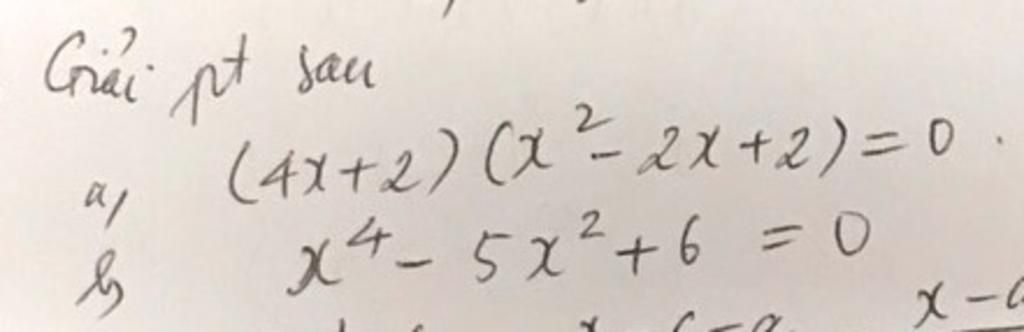 Giải pt sau
a, (4x+2)(x²-2x+2)=0.
b, x⁴-5x²+6=0